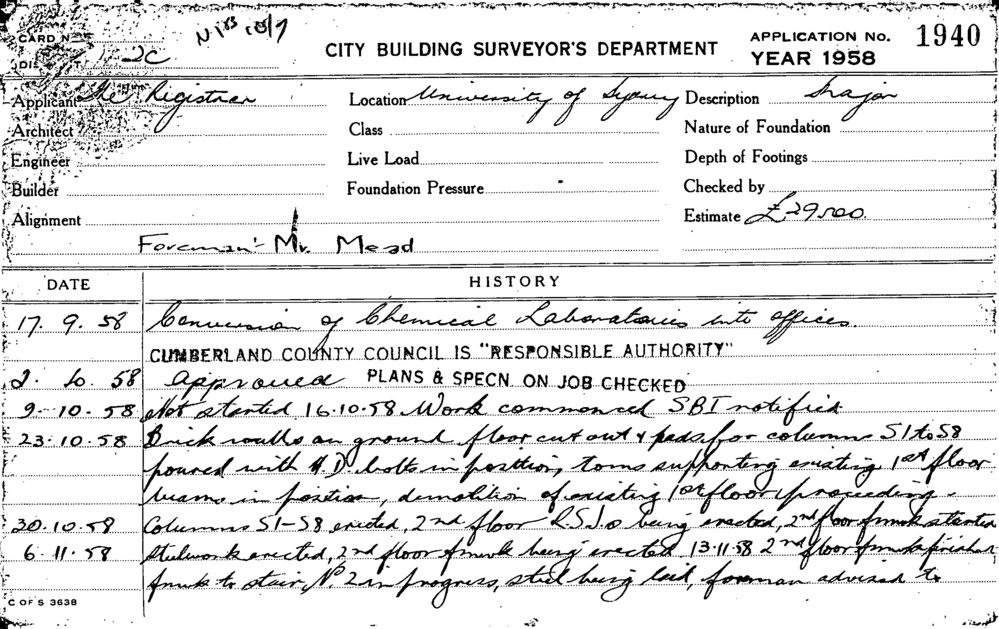 CARD No
N 193 10/7
DIST 2C
CITY BUILDING SURVEYOR'S DEPARTMENT
APPLICATION No. 1940
YEAR 1958
Applicant The Registrar
Location University of Sydney
Description
Architect
Class
Nature of Foundation
Engineer
Live Load
Depth of Footings
Builder
Foundation Pressure
Checked by
Alignment
Estimate £29,500
Foreman:- Mr. Mead
DATE
HISTORY
17. 9. 58 Conversion of Chemical Laboratories into offices.
CUMBERLAND COUNTY COUNCIL IS "RESPONSIBLE AUTHORITY"
2. 10. 58 Approved PLANS & SPECN. ON JOB CHECKED
9. 10. 58 Not started 16.10.58 Work commenced SBI notified
23.10.58 Brick walls on ground floor cut out & pads for columns S1 to S8
poured with H.D. bolts in position, toms supporting existing 1st floor
beams in position, demolition of existing 1st floor proceeding.
30.10.58 Columns S1-S8 erected, 2nd floor R.S.Js being erected, 2nd floor fmwk started
6. 11. 58 Steelwork erected, 2nd floor fmwk being erected 13.11.58 2nd floor fmwk finished
fmwk to stair No 2 in progress, steel being laid, foreman advised to
C OF S 3638